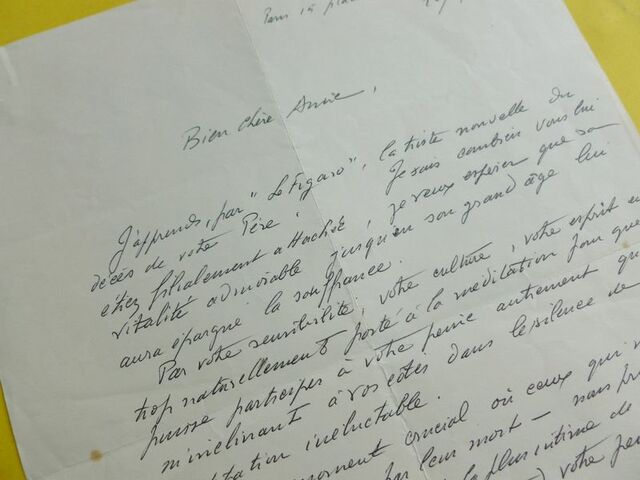 Paris
Bien chère Annie,
J'apprends, par "Le Figaro", la triste nouvelle du
décès de votre Père. Je sais combien vous lui
étiez filialement attachée, je veux espérer que sa
vitalité admirable jusqu'en son grand âge lui
aura épargné la souffrance.
Par votre sensibilité, votre culture, votre esprit
trop naturellement porté à la méditation pour que
puisse participer à votre peine autrement qu
m'inclinant à vos côtés dans le silence de
tation inéluctable.
moment crucial où ceux qui
par leur mort — nous
la plus intime de
votre